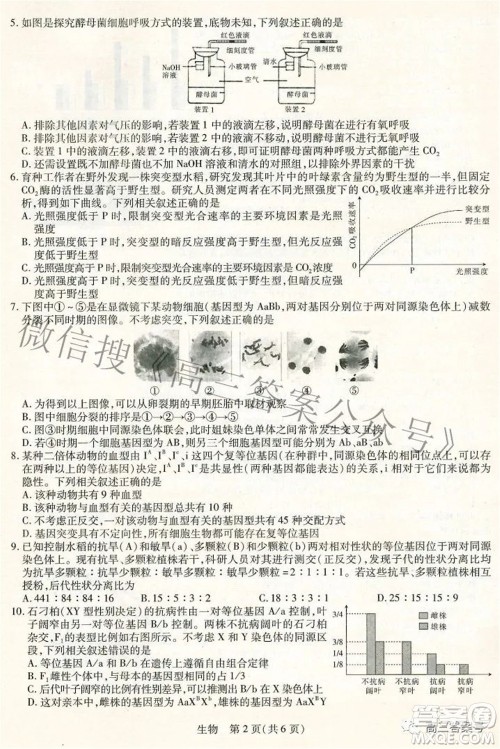 5. 如图是探究酵母菌细胞呼吸方式的装置,底物未知,下列叙述正确的是
红色液滴
细刻度管
NaOH
溶液
小玻璃管
空气
酵母菌
装置1
红色液滴
细刻度管
清水
小玻璃管
酵母菌
装置2
A. 排除其他因素对气压的影响,若装置1中的液滴左移,说明酵母菌在进行有氧呼吸
B. 排除其他因素对气压的影响,若装置2中的液滴不动,说明酵母菌在进行无氧呼吸
C. 装置1中的液滴左移,装置2中的液滴右移,即可证明酵母菌两种呼吸方式都能产生CO₂
D. 还需设置既无酵母菌也不加NaOH溶液和清水的对照组,以排除外界因素的干扰
6. 育种工作者在野外发现一株突变型水稻,研究发现其叶片中的叶绿素含量约为野生型的一半,但固定
CO₂酶的活性显著高于野生型。研究人员测定两者在不同光照强度下的CO₂吸收速率并进行比较分
析,得到如下曲线。下列相关叙述正确的是
A. 光照强度低于P时,限制突变型光合速率的主要环境因素是CO₂浓度
B. 光照强度低于P时,突变型的暗反应强度高于野生型,但光反应强
度低于野生型
C. 光照强度高于P时,突变型的暗反应强度低于野生型,但光反应强
度高于野生型
D. 光照强度高于P时,限制突变型光合速率的主要环境因素是CO₂浓度
CO₂吸收速率
突变型
野生型
P
光照强度
7. 下图中①~⑤是在显微镜下某动物细胞(基因型为AaBb,两对基因分别位于两对同源染色体上)减数
分裂不同时期的图像。不考虑突变,下列叙述正确的是
①
②
③
④
⑤
A. 图中的细胞图像,可以从卵裂期的早期胚胎中取材观察
B. 图中细胞分裂的排序是①→②→③→④→⑤
C. 图③中的同源染色体联会,此时姐妹染色单体之间常常发生交叉互换
D. 若④中的一个细胞的基因型为AAbb,则另一个细胞的基因型为aaBB
8. 某种二倍体动物的血型由Iᴬ、Iᴮ、Iᶜ、i这4个复等位基因控制(在种群中,同源染色体的相同位点上,存
在两种以上的等位基因,称为复等位基因),其中Iᴬ、Iᴮ、Iᶜ之间为共显性(即两者都表现),i对它们都为
隐性。下列相关叙述正确的是
A. 该种动物共有9种血型
B. 该种动物与血型有关的基因型共有10种
C. 不考虑正反交,一对该种动物与血型有关的基因型共有45种交配方式
D. 基因突变具有不定向性,iᶜ基因最终都能突变成Iᴬ基因或Iᴮ基因
9. 已知控制水稻的抗旱(A)和敏旱(a)、多颗粒(B)和少颗粒(b)两对相对性状的等位基因分别位于两对同
源染色体上。现有抗旱多颗粒植株若干,科研人员对其进行测交(正反交),发现多株测交后代的性状比
为抗旱多颗粒:抗旱少颗粒:敏旱多颗粒:敏旱少颗粒=2:1:2:1,若这些亲代植株相互授粉,
后代性状分离比为
A. 441:84:84:16
B. 15:5:3:2
C. 18:3:3:1
D. 6:1:1:1
10. 石刁柏(XY型性别决定)的抗病性由一对等位基因A/a控制,叶形由另一对等
位基因B/b控制。两株不抗病阔叶的石刁柏杂交得到F₁,
F₁的表现型如图所示。不考虑X和Y染色体的同源区
段,下列叙述错误的是
A. 等位基因A/a和B/b的遗传遵循自由组合定律
B. 等位基因A/a和B/b均位于X染色体上
C. 后代叶子阔窄的雌株中,杂合子所占的比例为1/3
D. 这对亲本中,雌株的基因型为AaXᴮXᵇ,雄株的基因型为AaXᴮY
雌株
雄株
不抗病
阔叶
不抗病
窄叶
抗病
阔叶
抗病
窄叶
生物 第2页(共6页)
微信搜《高三答案公众号》
高三答案号